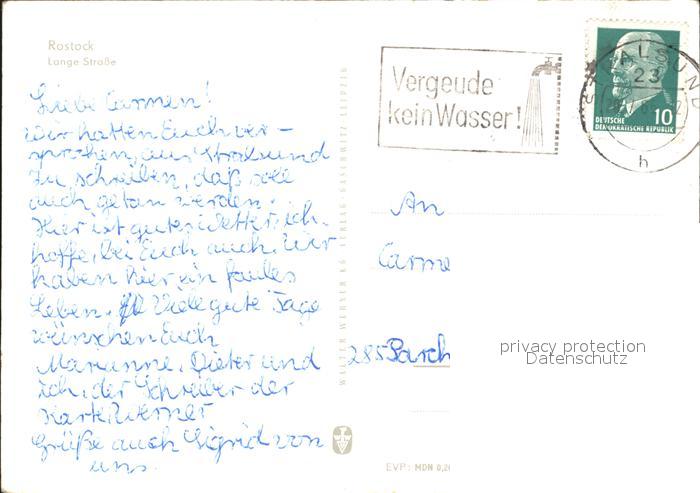 Rostock
Lange Straße
Liebe Carmen!
Wir hatten Euch ver-
sprochen, aus Stralsund
zu schreiben, daß soll
auch getan werden.
Hier ist gutes Wetter, ich
hoffe, bei Euch auch. Wir
haben hier ein faules
Leben. Viele gute Tage
wünschen Euch
Marianne, Dieter und
ich, der Schreiber der
Karte, Werner
Grüße auch Sigrid von
uns.
WALTER WERNER KG VERLAG GASCHWITZ LEIPZIG
Vergeude
kein Wasser!
STRALSUND
23
h
10
DEUTSCHE
DEMOKRATISCHE REPUBLIK
An
Carme
285 Parch
privacy protection
Datenschutz
EVP: MDN 0,20